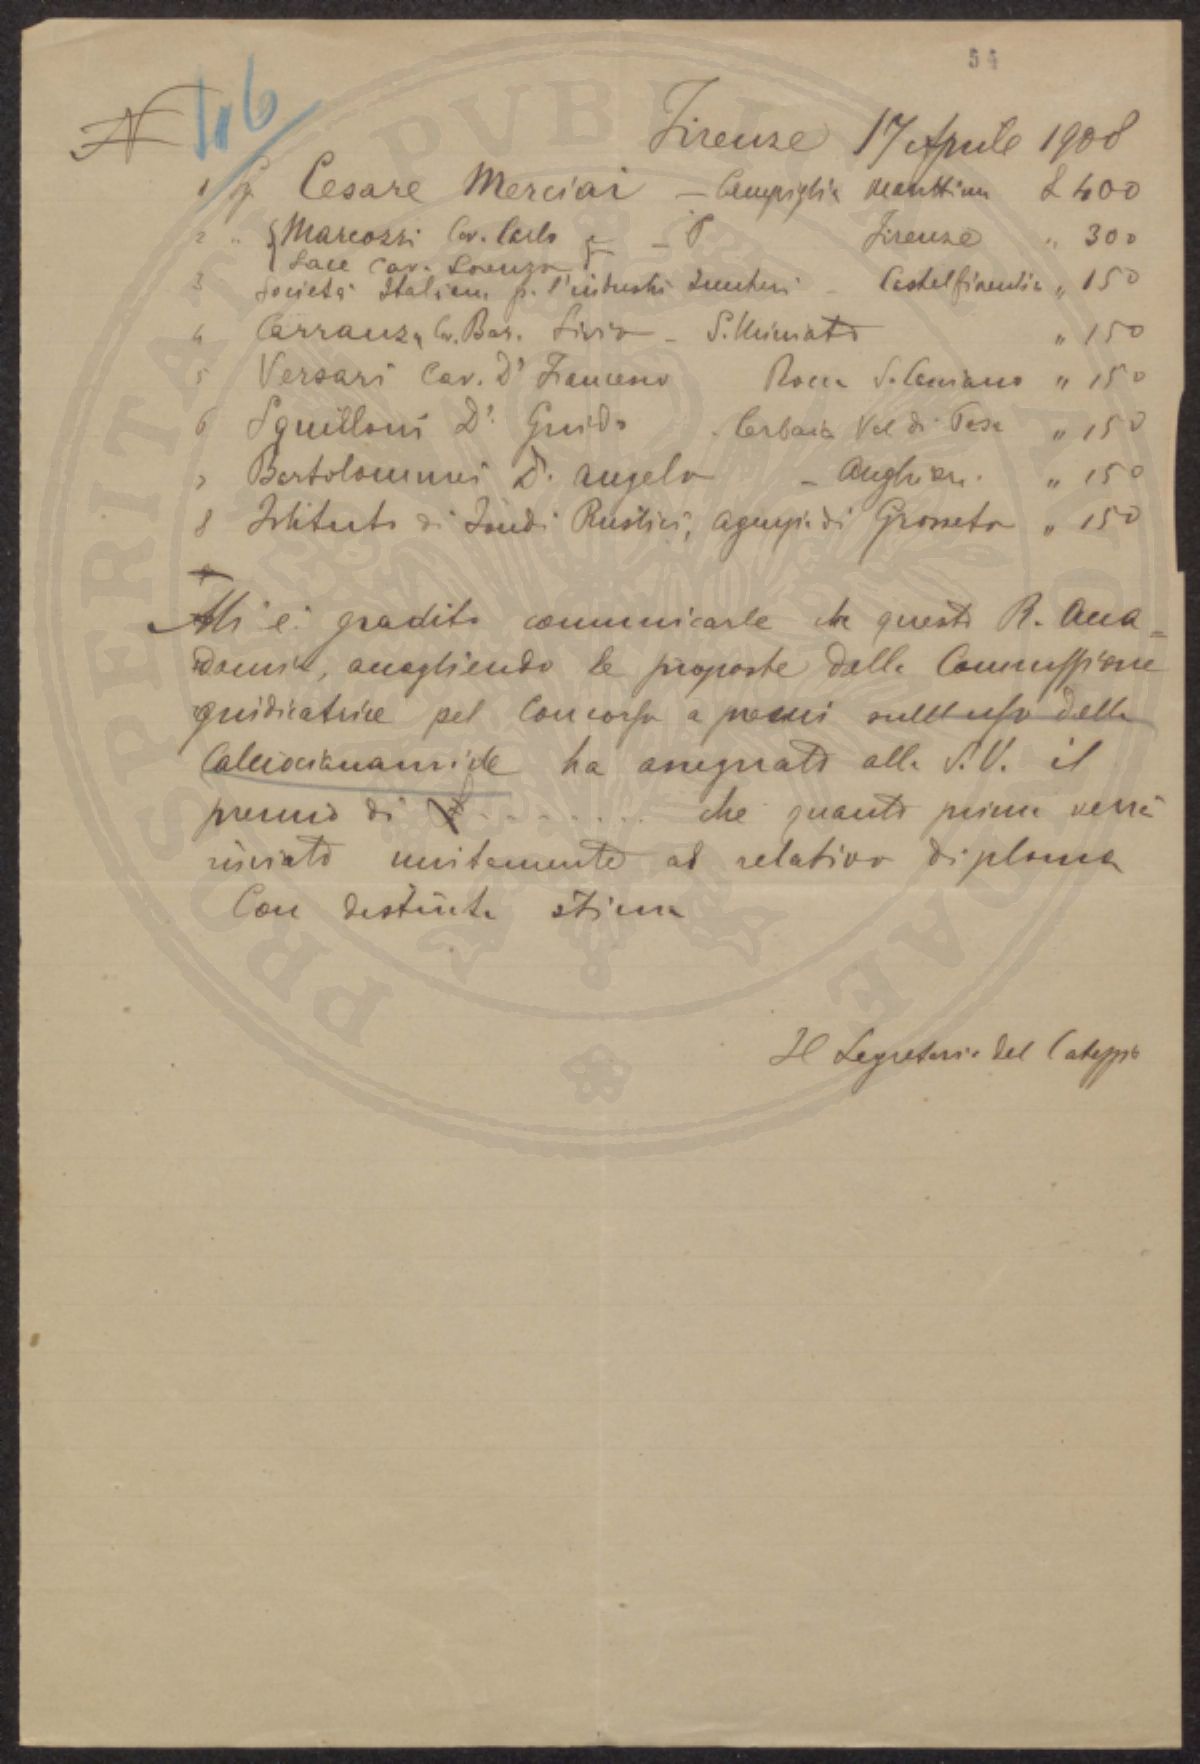 54
N 46
Firenze 17 Aprile 1908
1 Sig. Cesare Merciai - Campiglia Marittima L 400
2 " Marcozzi Cav. Carlo - Firenze " 300
Cav. Lorenzo
3 Società Italiana p. l'industri - Castelfiorentino " 150
4 Carranza Cav. Bar. Livio - S. Miniato " 150
5 Versari Cav. Dr Francesco Rocca S. Casciano " 150
6 Sguilloni Dr. Guido - Cerbaia Val di Pesa " 150
7 Bartolommei Dr. Angelo - Anghiari " 150
8 Istituto di Fondi Rustici, Agenzia di Grosseto " 150
Mi è gradito comunicarle che questa R. Acca=
demia, accogliendo le proposte della Commissione
giudicatrice pel Concorso a premi sull uso della
Calciocianamide ha assegnato alla S.V. il
premio di ........ che quanto prima verrà
inviato unitamente al relativo diploma
Con distinta stima
Il Segretario del Carteggio
PROSPERITATI PVBLICAE AVGENDAE